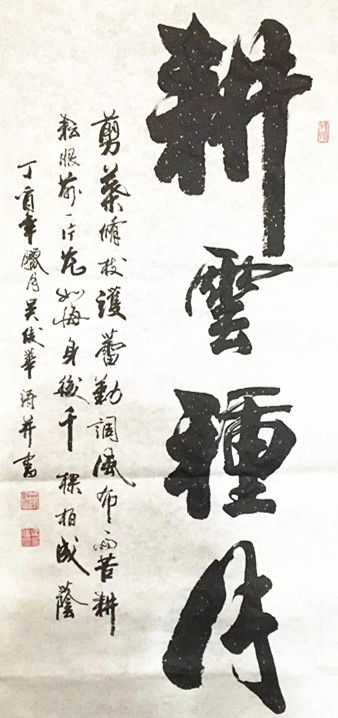 耕雲種月
剪葉修枝護蕾勤調風布雨苦耕
耘眼前一片花如海身後千棵柏成蔭
丁酉年臘月吴俊華詩并書